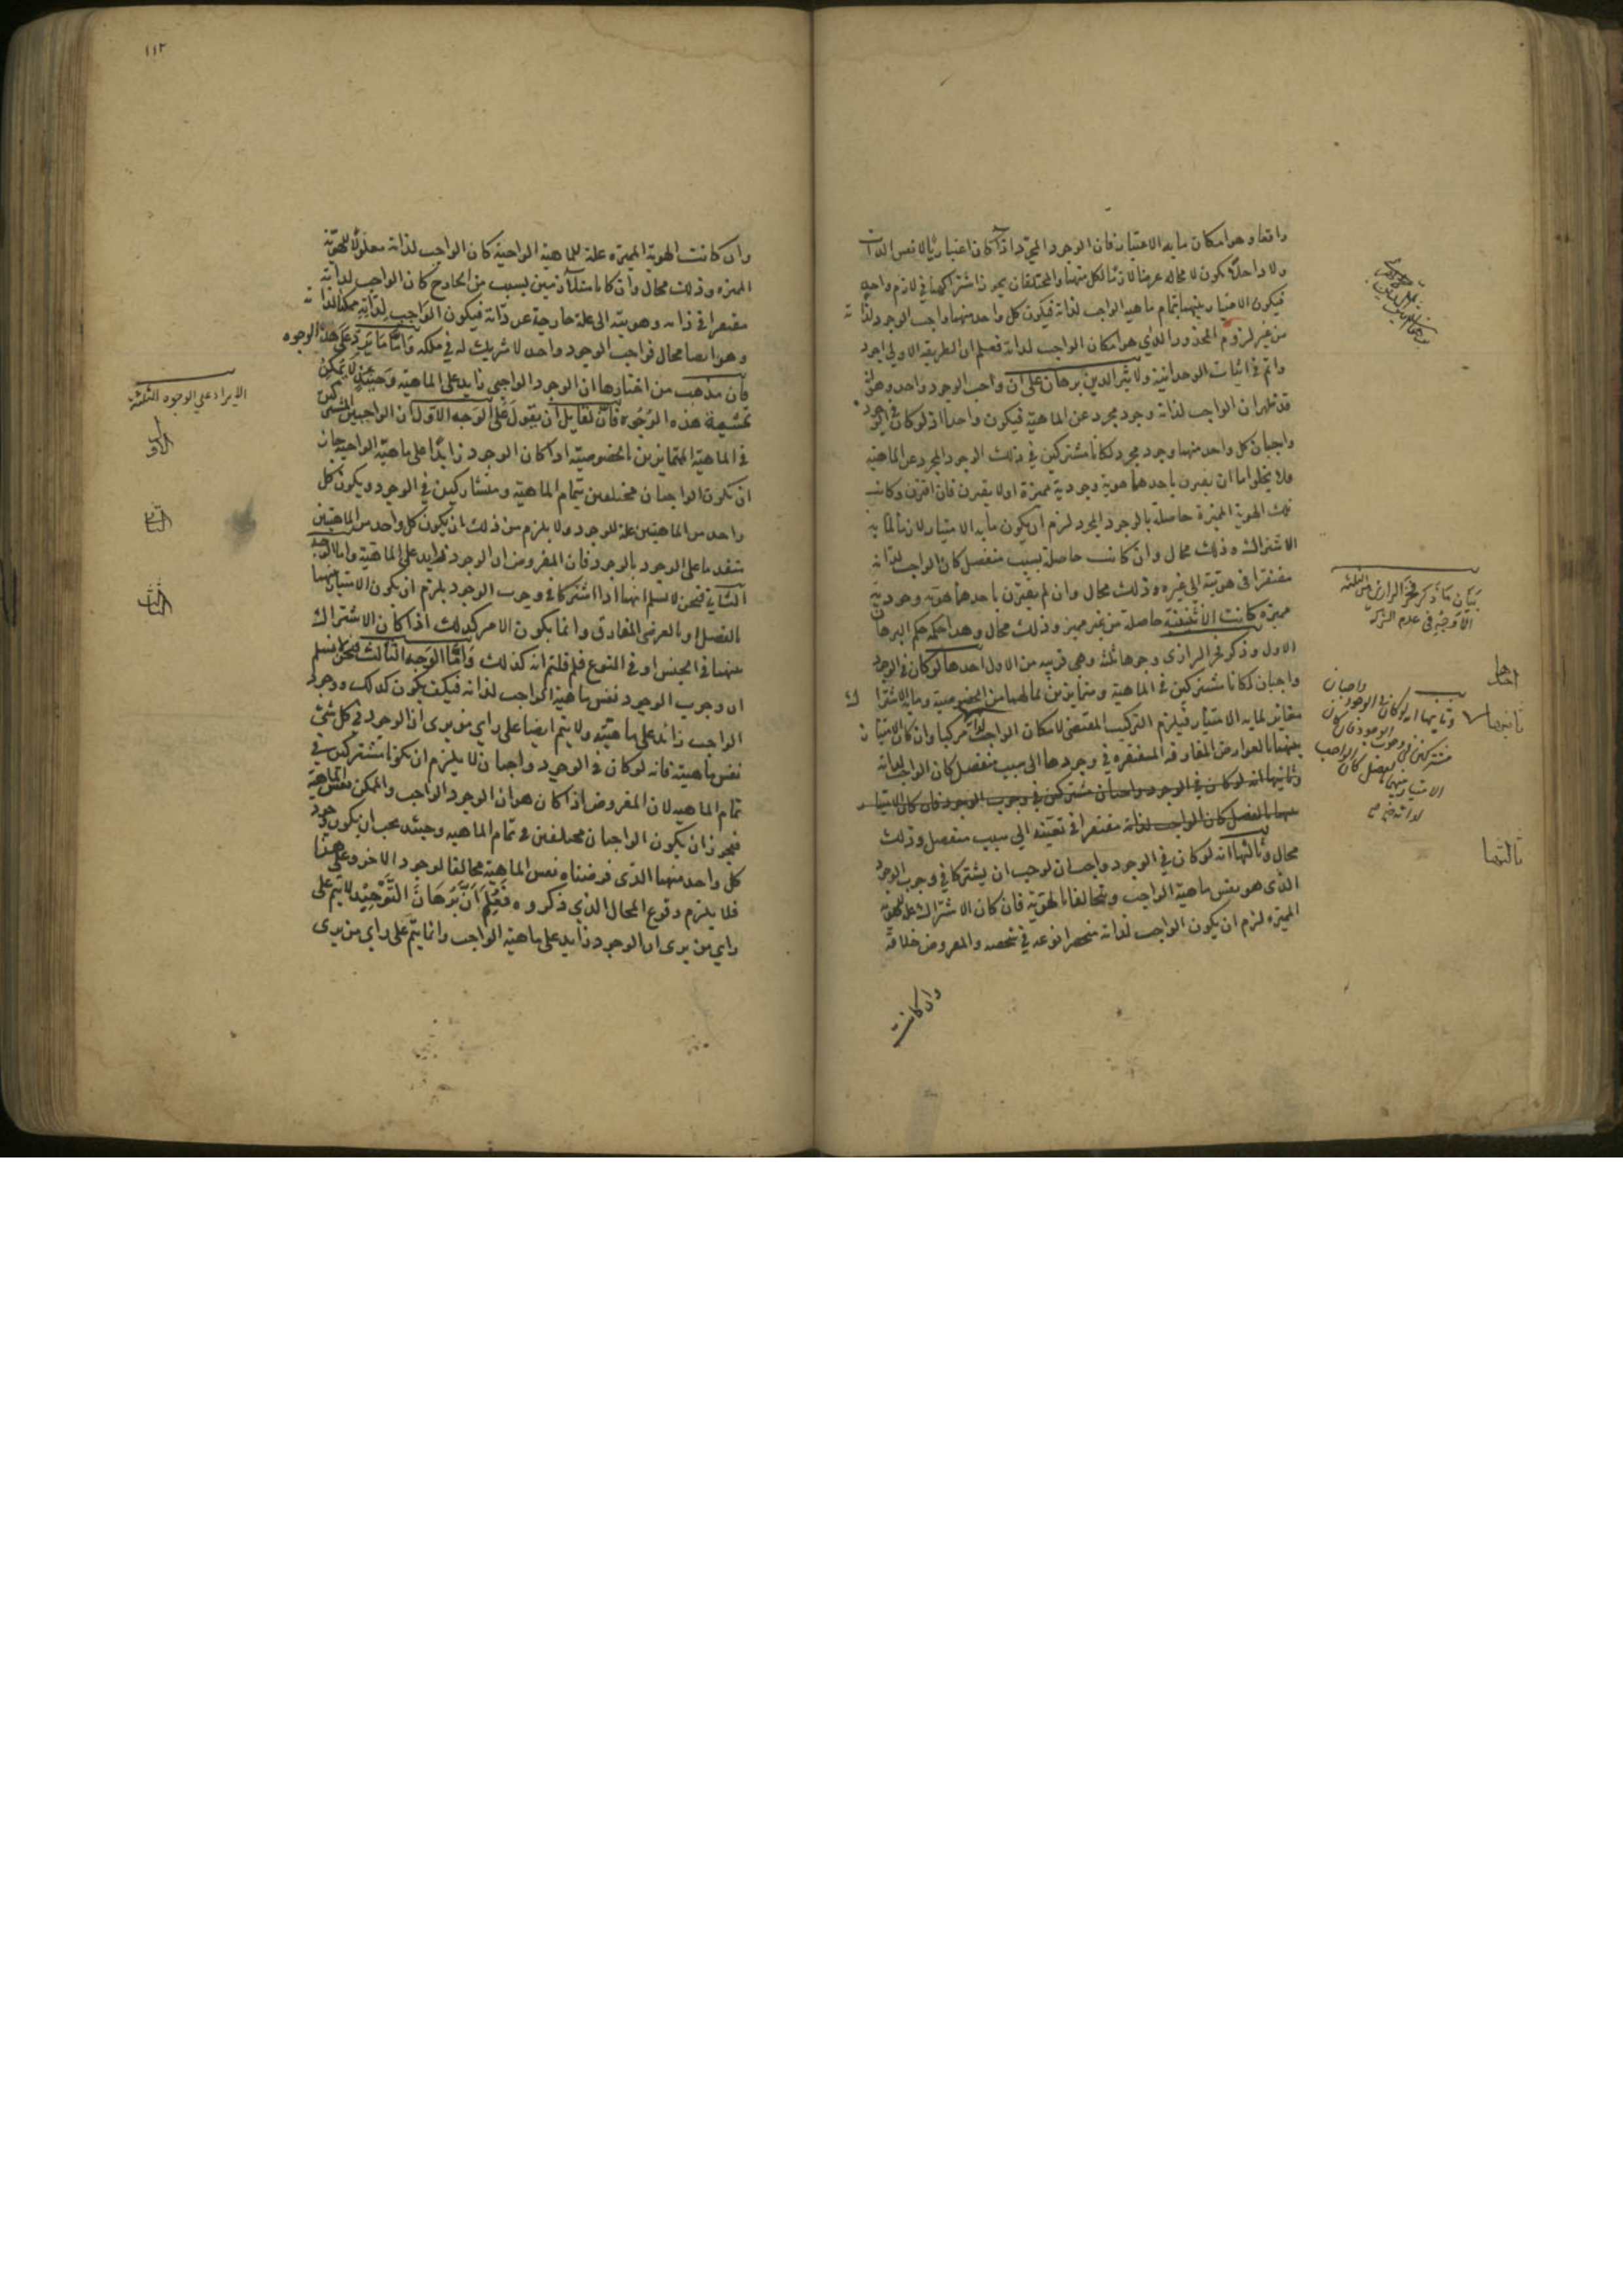 واقعا وهو امكان ما به الامتياز فان الوجود المجرد اذا كان اعتباريا لا نفس الذات
ولا داخلا يكون لا محالة عرضا لازما لكل منهما والمختلفان يجوز اشتراكهما في لازم واحد
فيكون الامتياز بينهما بتمام ماهية الواجب لذاته فيكون كل واحد منهما واجب الوجود لذاته
من غير لزوم المحذور الذي هو امكان الواجب لذاته فعلم ان الطريقة الاولى اجود
واتم في اثبات الوحدانية ولاثير الدين برهان على ان واجب الوجود واحد وهو انه
قد ظهر ان الواجب لذاته وجود مجرد عن الماهية فيكون واحدا اذ لو كان في الوجود
واجبان كل واحد منهما وجود مجرد لكانا مشتركين في ذلك الوجود المجرد عن الماهية
فلا يخلو اما ان يقترن باحدهما هوية وجودية مميزة او لا يقترن فان اقترن وكانت
تلك الهوية المميزة حاصلة بالوجود المجرد لزم ان يكون ما به الامتياز لازما لما به
الاشتراك وذلك محال وان كانت حاصلة بسبب منفصل كان الواجب لذاته
مفتقرا في هويته الى غيره وذلك محال وان لم يقترن باحدهما هوية وجودية
مميزة كانت الاثنينية حاصلة من غير مميز وذلك محال وهذا حكمه حكم البرهان
الاول وذكر فخر الرازى وجوها ثلثة وهي قريبة من الاول احدها لو كان في الوجود
واجبان لكانا مشتركين في الماهية ومتمايزين بما لهما من الخصوصية وما به الاشتراك
مغاير لما به الامتياز فيلزم التركيب المقتضى لامكان الواجب لذاته مركبا وان كان الامتياز
بينهما بالعوارض المفارقة المفتقرة في وجودها الى سبب منفصل كان الواجب لذاته
وثانيها انه لو كان في الوجود واجبان مشتركين في وجوب الوجود فان كان الامتياز
بينهما بالفصل كان الواجب لذاته مفتقرا في تعينه الى سبب منفصل وذلك
محال وثالثها انه لو كان في الوجود واجبان لوجب ان يشتركا في وجوب الوجود
الذى هو نفس ماهية الواجب ويتخالفا بالهوية فان كان الاشتراك علة للهوية
المميزة لزم ان يكون الواجب لذاته منحصرا نوعه في شخصه والمفروض خلافه
وان كانت
بيان ما ذكر فخر الرازى من الثلثة
الاوجه في عدم الشركة
احدها
ثانيها
وثانيها انه لو كان في الوجود واجبان
مشتركين في وجوب الوجود فان كان
الامتياز بينهما بالفصل كان الواجب
لذاته
ثالثها
١١٢
وان كانت الهوية المميزة علة للماهية الواجبة كان الواجب لذاته معلولا للهوية
المميزة وذلك محال وان كانا متلازمين بسبب من الخارج كان الواجب لذاته
مفتقرا في ذاته وهويته الى علة خارجة عن ذاته فيكون الواجب لذاته ممكنا لذاته
وهو ايضا محال فواجب الوجود واحد لا شريك له في ملكه واما ما يرد على هذه الوجوه
فان مذهب من اختارها ان الوجود الواجبي زايد على الماهية وحينئذ لا يمكن
تمشية هذه الوجوه فان لقايل ان يقول على الوجه الاول ان الواجبين المشتركين
في الماهية المتمايزين بالخصوصية اذا كان الوجود زايدا على ماهية الواجب جاز
ان يكون الواجبان مختلفين بتمام الماهية ومتشاركين في الوجود ويكون كل
واحد من الماهيتين علة للوجود ولا يلزم من ذلك ان يكون كل واحد من الماهيتين
متقدما على الوجود بالوجود فان المفروض ان الوجود زايد على الماهية واما الوجه
الثاني فنحن لا نسلم انهما اذا اشتركا في وجوب الوجود يلزم ان يكون الامتياز بينهما
بالفصل او بالعرضى المفارق وانما يكون الامر كذلك اذا كان الاشتراك
بينهما في الجنس او في النوع فلم قلتم انه كذلك واما الوجه الثالث فنحن لا نسلم
ان وجوب الوجود نفس ماهية الواجب لذاته فكيف يكون كذلك ووجود
الواجب زائد على ماهيته ولا يتم ايضا على راي من يرى ان الوجود في كل شئ
نفس ماهيته فانه لو كان في الوجود واجبان لا يلزم ان يكونا مشتركين في
تمام الماهية لان المفروض اذا كان هو ان الوجود الواجب والممكن نفس الماهية
فيجوز ان يكون الواجبان مختلفين في تمام الماهية وحينئذ يجب ان يكون وجود
كل واحد منهما الذى فرضناه نفس الماهية مخالفا لوجود الاخر وعلى هذا
فلا يلزم وقوع المحال الذي ذكروه فعلم ان برهان التوحيد لا يتم على
راي من يرى ان الوجود زايد على ماهية الواجب وانما يتم على راي من يرى
الايراد على الوجوه الثلثة
الاول
الثاني
الثالث